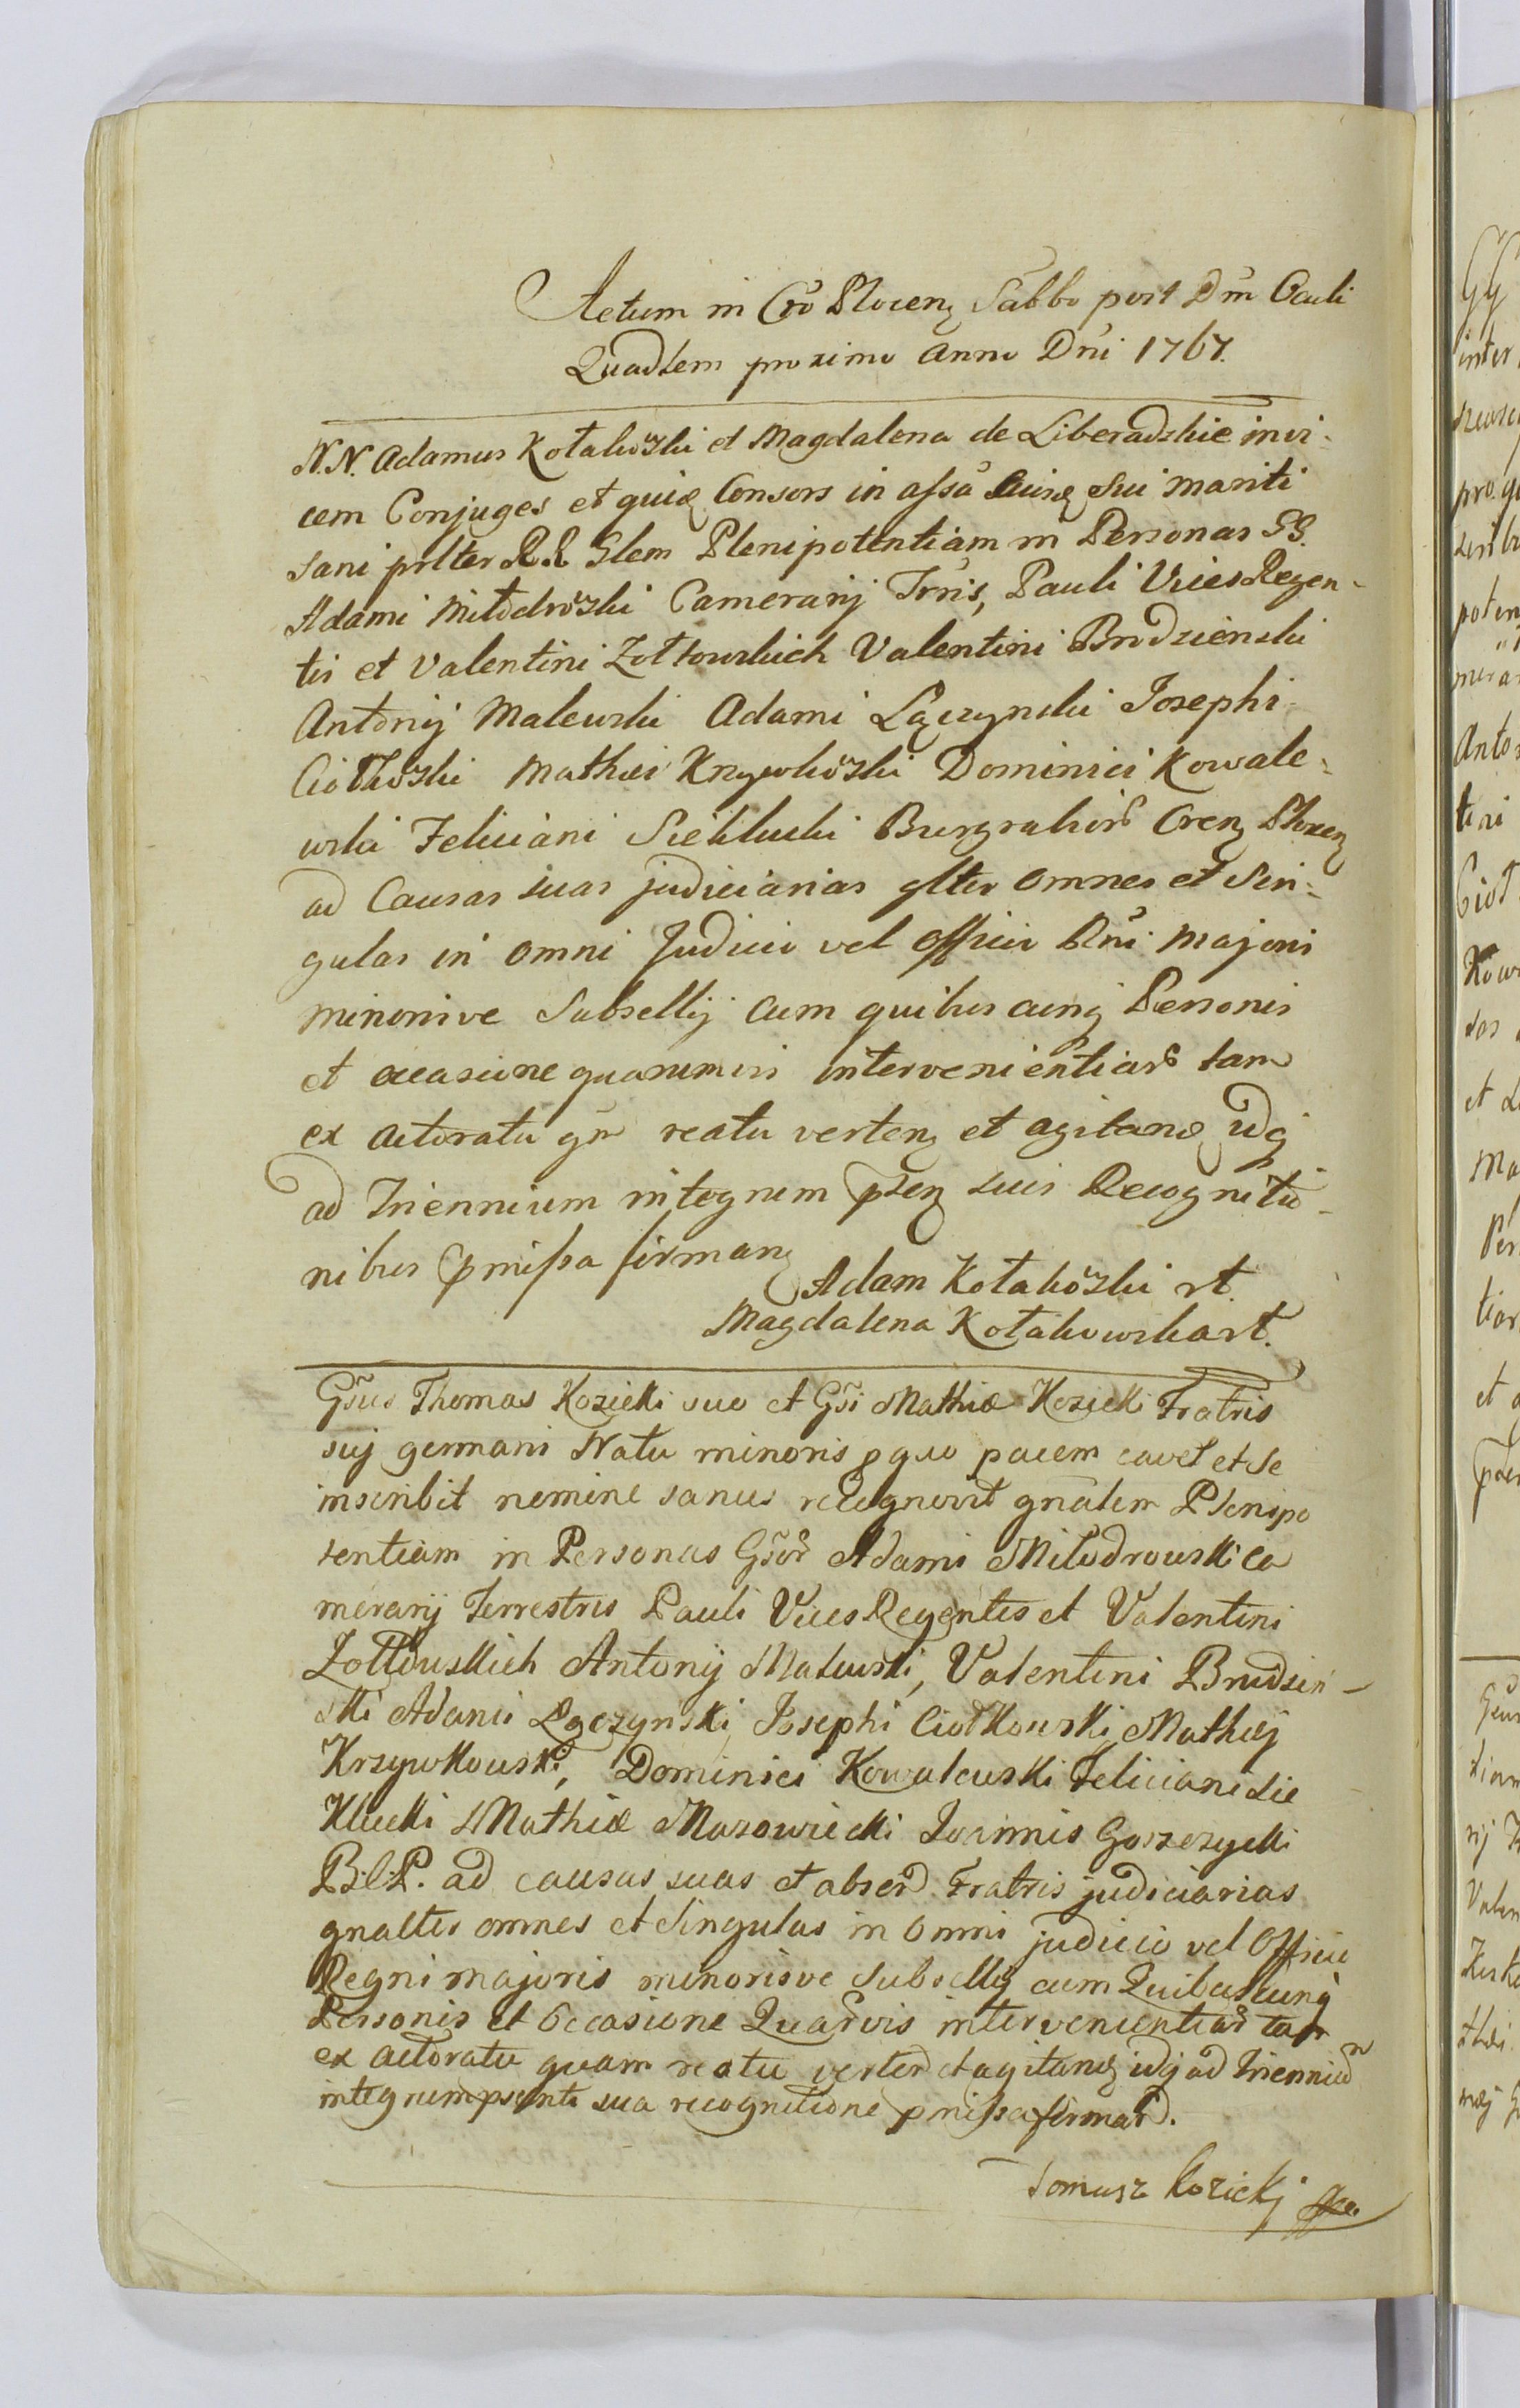 Actum in Cro Plocen Sabbo post Dm Oculi
Quadlem proximo Anno Dni 1767.
N.N. Adamus Kołakoski et Magdalena de Liberadzkie invi-
cem Conjuges et quidem Consors in assa cuius sui mariti
sani prlter R.R. Glem Plenipotentiam in Personas GG.
Adami Miłodroski Camerarij Trris, Pauli Vices Regen-
tis et Valentini Zołtowskich Valentini Brudzienski
Antonij Malewski Adami Łączynski Josephi
Ciołkoski Mathæi Krzywkoski Dominici Kowale-
wski Feliciani Sieklucki Burgrabior Cren Plocen
ad Causas suas judiciarias glter omnes et Sin-
gulas in omni Judicio vel Officio Rni majoris
minorisve Subsellij cum quibuscunq Personis
et occasione quarumvis intervenientiar tam
ex actoratu qm reatu verten et agitand idq
ad Triennium integrum psen suis Recognitio-
nibus pmissa firman
Adam Kołakoski rt.
Magdalena Kołakowska rt.
Gsus Thomas Kozicki suo et Gsi Mathiæ Kozicki Fratris
suj germani Natu minoris p quo pacem cavet et se
inscribit nomine sanus recognovit gnalem Plenipo
tentiam in Personas Gsor Adami Miłodrowski Ca
merarij Terrestris Pauli Vices Regentis et Valentini
Zołtowskich Antonij Malewski, Valentini Brudzin-
ski Adami Łączynski, Josephi Ciołkowski, Mathæj
Krzywkowski, Dominici Kowalewski Feliciani Sie
Klucki Mathiæ Mazowiecki Joannis Goszczycki
B.C.P. ad causas suas et absen Fratris judiciarias
gnalter omnes et Singulas in omni judicio vel Officio
Regni majoris minorisve Subsellij cum Quibuscunq
Personis et Occasione Quarvis intervenientiar tam
ex actoratu quam reatu verten et agitand idq ad Triennium
integrum psenti sua recognitione pmissa firmand.
Tomasz Kozickj